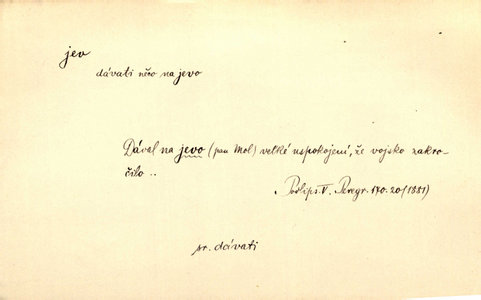 jev
dávati něco na jevo
Dával na jevo (pan Mol) velké uspokojení, že vojsko zakro-
čilo ..
Podlips. V. Peregr. 170. 20 (1881)
sr. dávati